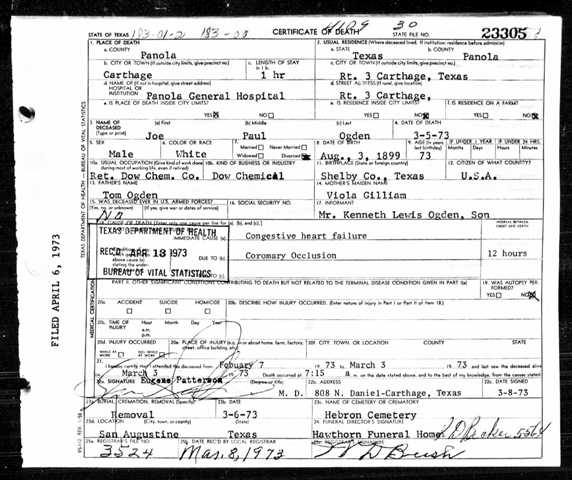 STATE OF TEXAS 183-01-2 183-00 CERTIFICATE OF DEATH 30 STATE FILE NO. 23305
1. PLACE OF DEATH 2. USUAL RESIDENCE (Where deceased lived. If institution: residence before admission)
a. COUNTY Panola a. STATE Texas b. COUNTY Panola
b. CITY OR TOWN (If outside city limits, give precinct no.) c. LENGTH OF STAY in 1.b. c. CITY OR TOWN (If outside city limits, give precinct no.)
Carthage 1 hr Rt. 3 Carthage, Texas
d. NAME OF (If not in hospital, give street address) HOSPITAL OR INSTITUTION d. STREET ADDRESS (If rural, give location)
Panola General Hospital Rt. 3 Carthage,
e. IS PLACE OF DEATH INSIDE CITY LIMITS? e. IS RESIDENCE INSIDE CITY LIMITS? f. IS RESIDENCE ON A FARM?
YES NO YES NO YES NO
3. NAME OF DECEASED (Type or print) (a) First (b) Middle (c) Last 4. DATE OF DEATH
Joe Paul Ogden 3-5-73
5. SEX 6. COLOR OR RACE 7. Married Never Married Widowed Divorced 8. DATE OF BIRTH 9. AGE (In years last birthday) IF UNDER 1 YEAR Months Days IF UNDER 24 HRS. Hours Min.
Male White Aug., 3, 1899 73
10a. USUAL OCCUPATION (Give kind of work done during most of working life, even if retired) 10b. KIND OF BUSINESS OR INDUSTRY 11. BIRTHPLACE (State or foreign country) 12. CITIZEN OF WHAT COUNTRY?
Ret. Dow Chem. Co. Dow Chemical Shelby Co., Texas U.S.A.
13. FATHER'S NAME 14. MOTHER'S MAIDEN NAME
Tom Ogden Viola Gilliam
15. WAS DECEASED EVER IN U.S. ARMED FORCES? (Yes, no, or unknown) (If yes, give war or dates of service) 16. SOCIAL SECURITY NO. 17. INFORMANT
No Mr. Kenneth Lewis Ogden, Son
18. CAUSE OF DEATH (Enter only one cause per line for (a), (b), and (c).) INTERVAL BETWEEN ONSET AND DEATH
TEXAS DEPARTMENT OF HEALTH
IMMEDIATE CAUSE (a) Congestive heart failure
REC'D APR 18 1973
above cause (a) stating the under- DUE TO (b) Coromary Occlusion 12 hours
BUREAU OF VITAL STATISTICS DUE TO (c)
PART II. OTHER SIGNIFICANT CONDITIONS CONTRIBUTING TO DEATH BUT NOT RELATED TO THE TERMINAL DISEASE CONDITION GIVEN IN PART I(a) 19. WAS AUTOPSY PERFORMED?
YES NO
20a. ACCIDENT SUICIDE HOMICIDE 20b. DESCRIBE HOW INJURY OCCURRED. (Enter nature of injury in Part I or Part II of Item 18.)
20c. TIME OF INJURY Hour Month Day Year
a.m.
p.m.
20d. INJURY OCCURRED WHILE AT WORK NOT WHILE AT WORK 20e. PLACE OF INJURY (e.g. in or about home, farm, factory, street, office building, etc.) 20f. CITY, TOWN, OR LOCATION COUNTY STATE
21. I hereby certify that I attended the deceased from Febuary 7 19 73 to March 3 19 73 and last saw the deceased alive
on March 3 19 73 Death occurred at 7:15 a m. on the date stated above, and to the best of my knowledge, from the causes stated.
22a. SIGNATURE Eugene Patterson (Degree or title) 22b. ADDRESS 22c. DATE SIGNED
M. D. 808 N. Daniel-Carthage, Texas 3-8-73
23a. BURIAL, CREMATION, REMOVAL (Specify) 23b. DATE 23c. NAME OF CEMETERY OR CREMATORY
Removal 3-6-73 Hebron Cemetery
23d. LOCATION (City, town, or county) (State) 24. FUNERAL DIRECTOR'S SIGNATURE
San Augustine Texas Hawthorn Funeral Home
25a. REGISTRAR'S FILE NO. 25b. DATE REC'D BY LOCAL REGISTRAR 25c. REGISTRAR'S SIGNATURE
3524 Mar. 8, 1973
TEXAS DEPARTMENT OF HEALTH — BUREAU OF VITAL STATISTICS
MEDICAL CERTIFICATION
FILED APRIL 6, 1973